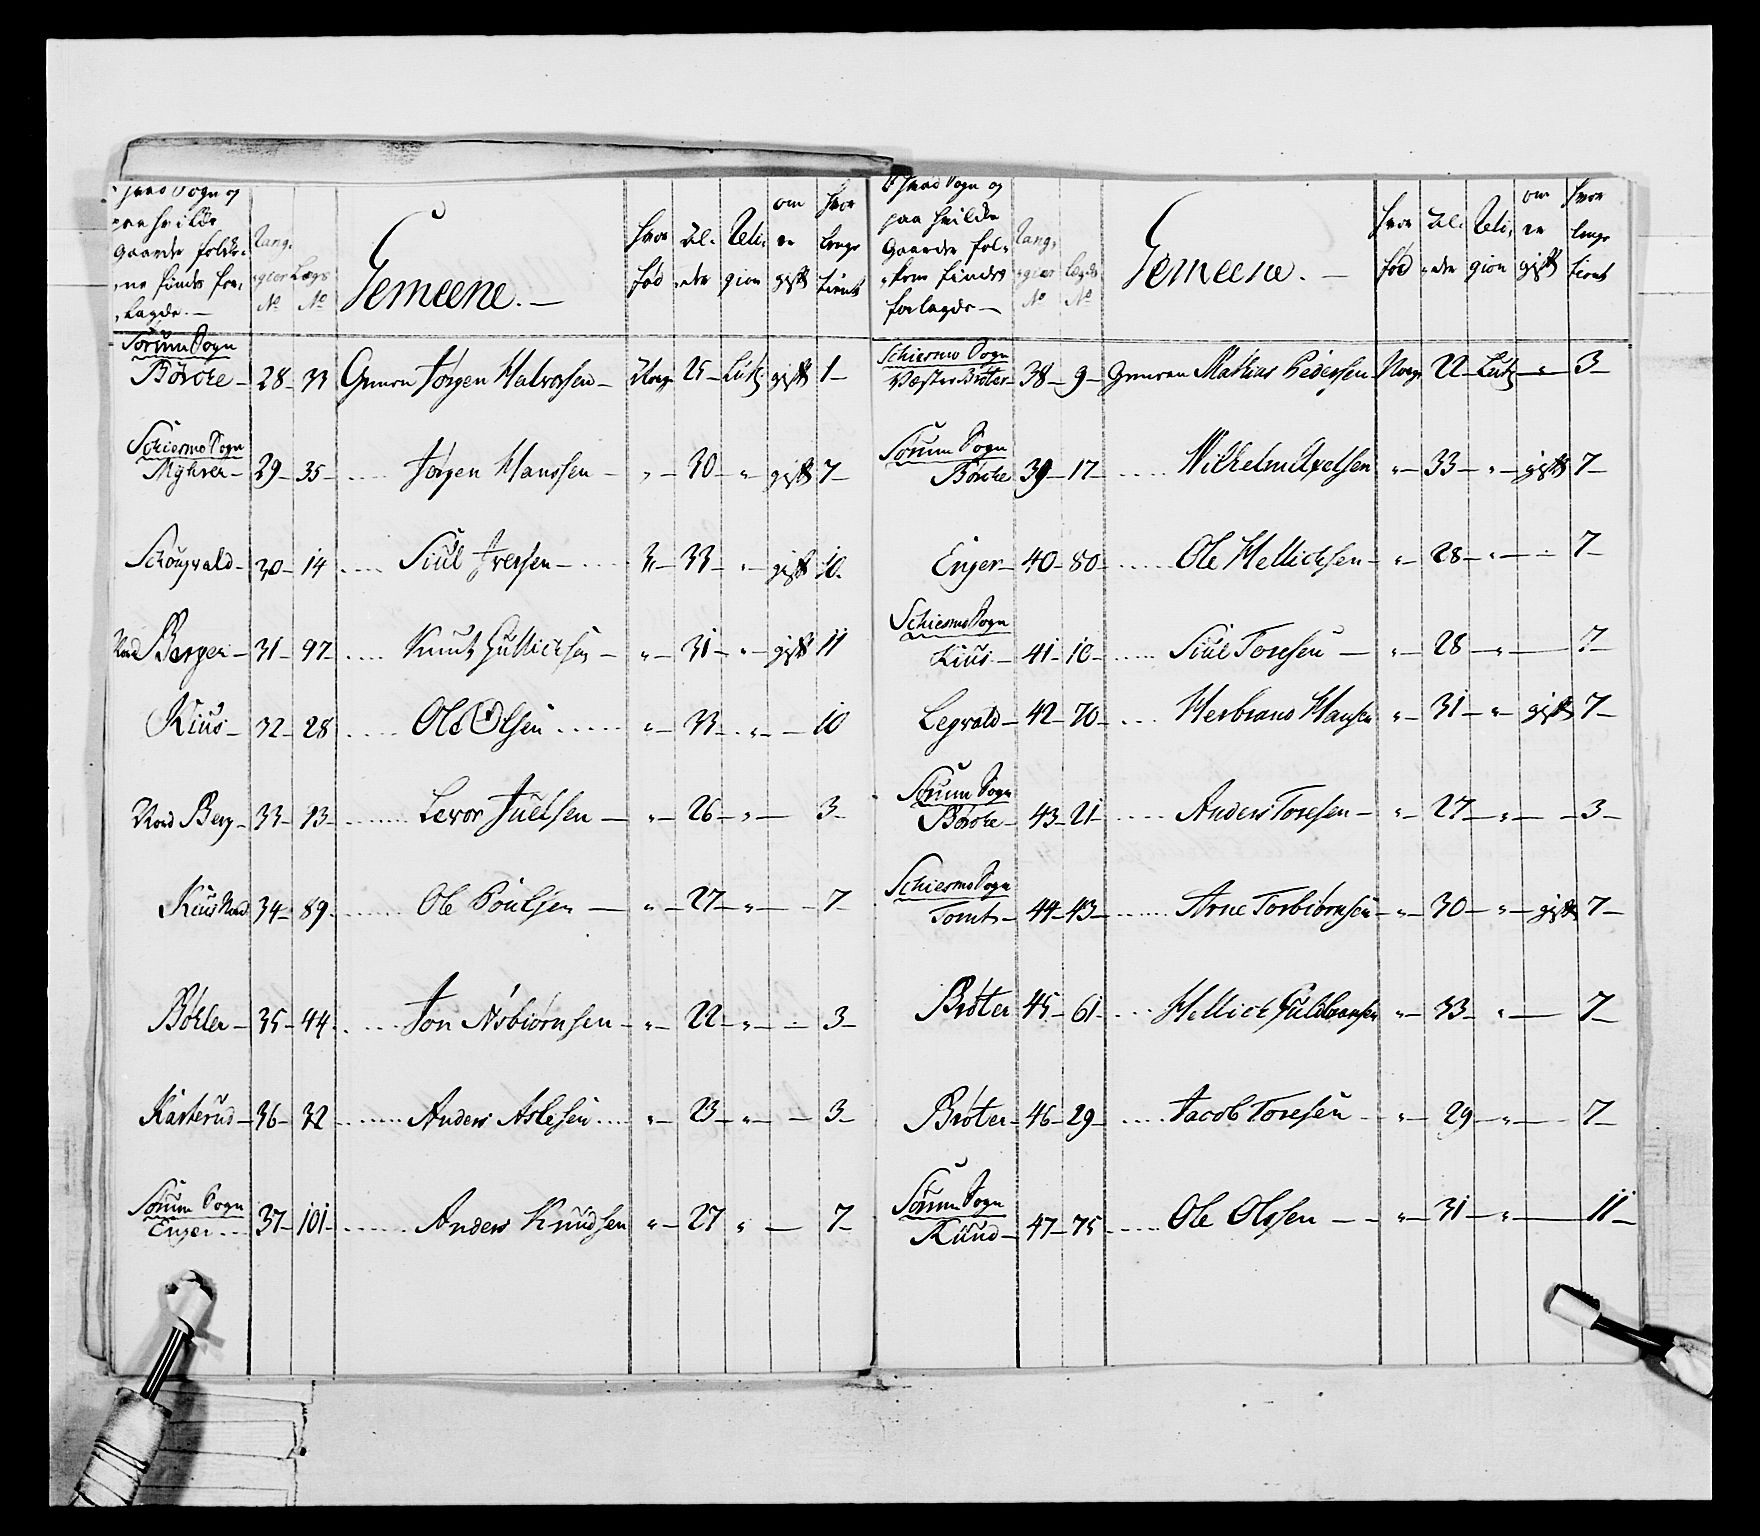 hvad Sogn og
paa hvilke
Gaarde folke-
ne findes for-
lagde. —
Rang-
gier
No
Lægs
No
Gemeene. —
Hvor
fød
Al-
der
Reli-
gion
om
er
gift
hvor
lenge
tient
Sørum Sogn
Börcke — 28 — 33 Gemeen Jörgen Halvorsen — Norge 25 — Luth: gift 1 —
Schiermo Sogn
Myhren — 29 — 35 — ..... Jörgen Hanssen — " — 30 — " gift 7 —
Schougvald — 30 — 14 ..... Siul Iversen — ..... N — 33 — " gift 10 —
Nord Bergen — 31 — 97 ..... Knut Gullichsen — " — 31 — " — gift 11
Kius — 32 — 28 ..... Ole Olsen ..... " — 33 — " — 10
Nord Berg — 33 — 93 — ..... Levor Juelsen — " — 26 — " — 3 —
Kius Nord 34 — 89 ..... Ole Poulsen — " — 27 — " — 7 —
Böhler — 35 — 44 ..... Jon Asbiörnsen — " — 22 — " — 3 —
Kasterud — 36 — 32 ..... Anders Aslesen .... " — 23 — " — 3 —
Sørum Sogn
Enger ... 37 — 101 — ..... Anders Knudsen " — 27 " — 7 —
hvad Sogn og
paa hvilke
Gaarde fol-
kene findes
forlagde —
Rang-
gier
No
Lægds
No
Gemeene. —
hvor
fød
Al-
der
Reli-
gion
om
er
gift
hvor
lenge
tient
Schiermo Sogn
Væster Brøter — 38 — 9 — Gemeen Mathias Pedersen Norge 22 — Luth — " — 3 —
Sørum Sogn
Börcke 39 — 17 — ..... Wilhelm Axelsen " — 33 — " — gift 7 —
Enger — 40 — 80 — ..... Ole Hellichsen — " — 28 — " — 7 —
Schiermo Sogn
Kius — 41 — 10 — ..... Siul Toresen — " — 28 — " — 7 —
Legvald — 42 — 70 — .... Herbrand Hansen " — 31 — " — gift 7 —
Sørum Sogn
Börcke — 43 — 21 — ..... Anders Toresen — " — 27 — " — 3 —
Schiermo Sogn
Tomt — 44 — 43 — ..... Arne Torbiörnsen — " — 30 — " — gift 7 —
Brøter 45 — 61 — .... Hellich Guldbransen " — 33 — " — 7 —
Brøter — 46 — 29 — ..... Jacob Toresen — " — 29 — " — 7 —
Sørum Sogn
Kuud — 47 — 75 — ..... Ole Olssen — — " — 31 — " — 11 —